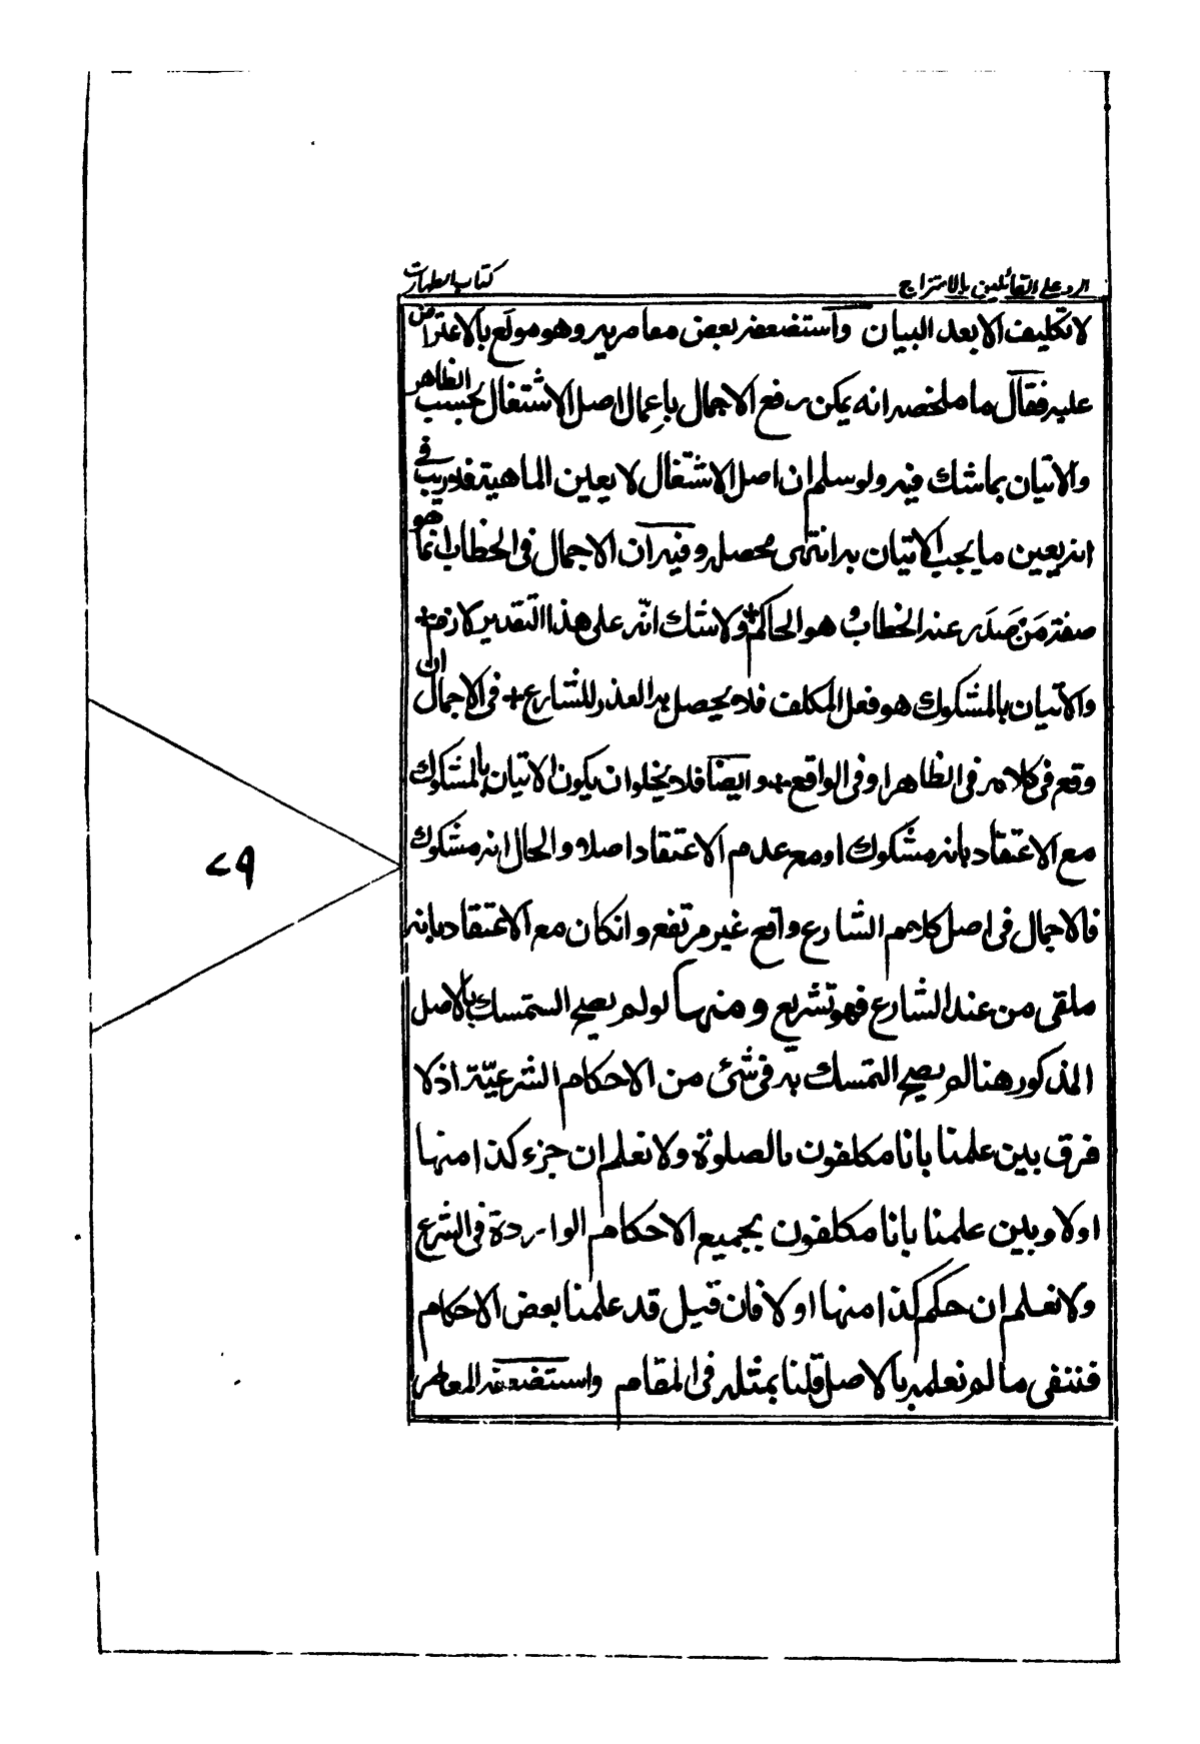 الرد علی القائلین بالامتزاج کتاب الطهارت
لا تکلیف الا بعد البیان واستضعفه بعض معاصریه وهو مولع بالاعتراض
علیه فقال ما ملخصه انه یمکن رفع الاجمال باعمال اصل الاشتغال بحسب الظاهر
والاتیان بما شك فیه ولو سلم ان اصل الاشتغال لا یعین الماهیة فلا ریب فی
انه یعین ما یجب الاتیان به انتهی محصله وفیه ان الاجمال فی الخطاب انما هو
صفة مَن صَدَر عنه الخطاب و هو الحاکم + ولا شك انّه علی هذا التقدیر لازم +
والاتیان بالمشکوك هو فعل المکلف فلا یحصل به العذر للشارع + فی الاجمال ان
وقع فی کلامه فی الظاهر او فی الواقع + وایضا فلا یخلو ان یکون الاتیان بالمشکوك
مع الاعتقاد بانه مشکوك او مع عدم الاعتقاد اصلا والحال انه مشکوك
فالاجمال فی اصل کلام الشارع واقع غیر مرتفع وانکان مع الاعتقاد بانه
ملقی من عند الشارع فهو تشریع ومنها لو لم یصح التمسك بالاصل
المذکور هنا لم یصح التمسك به فی شیٔ من الاحکام الشرعیّة اذ لا
فرق بین علمنا بانا مکلفون بالصلوٰة ولا نعلم ان جزء کذا منها
اولا وبین علمنا بانا مکلفون بجمیع الاحکام الواردة فی الشرع
ولا نعلم ان حکم کذا منها اولا فان قیل قد علمنا بعض الاحکام
فننفی ما لم نعلمه بالاصل قلنا بمثله فی المقام واستضعفه المعاصر
۲۹